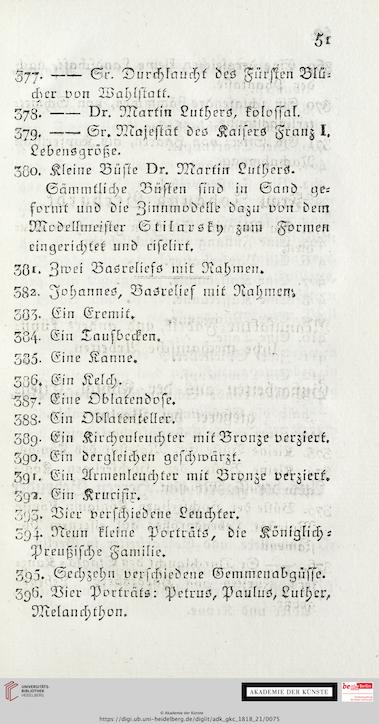 51
377. —— Sr. Durchlaucht des Fürsten Blü-
cher von Wahlstatt.
378. —— Dr. Martin Luthers, kolossal.
379. —— Sr. Majestät des Kaisers Franz I.
Lebensgröße.
380. Kleine Büste Dr. Martin Luthers.
Sämmtliche Büsten sind in Sand ge-
formt und die Zinnmodelle dazu von dem
Modellmeister Stilarsky zum Formen
eingerichtet und ciselirt.
381. Zwei Basreliefs mit Rahmen.
382. Johannes, Basrelief mit Rahmen.
383. Ein Eremit.
384. Ein Taufbecken.
385. Eine Kanne.
386. Ein Kelch.
387. Eine Oblatendose.
388. Ein Oblatenteller.
389. Ein Kirchenleuchter mit Bronze verziert.
390. Ein dergleichen geschwärzt.
391. Ein Armenleuchter mit Bronze verziert.
392. Ein Krucifix.
393. Vier verschiedene Leuchter.
394. Neun kleine Porträts, die Königlich-
Preußische Familie.
395. Sechzehn verschiedene Gemmenabgüsse.
396. Vier Porträts: Petrus, Paulus, Luther,
Melanchthon.
UNIVERSITÄTS-
BIBLIOTHEK
HEIDELBERG
AKADEMIE DER KÜNSTE
© Akademie der Künste
https://digi.ub.uni-heidelberg.de/diglit/adk_gkc_1818_21/0075